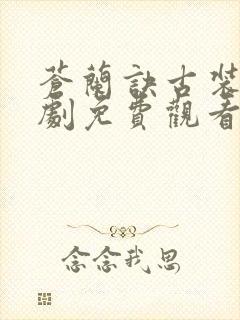 蒼蘭訣古裝
劇免費觀看
念念我思